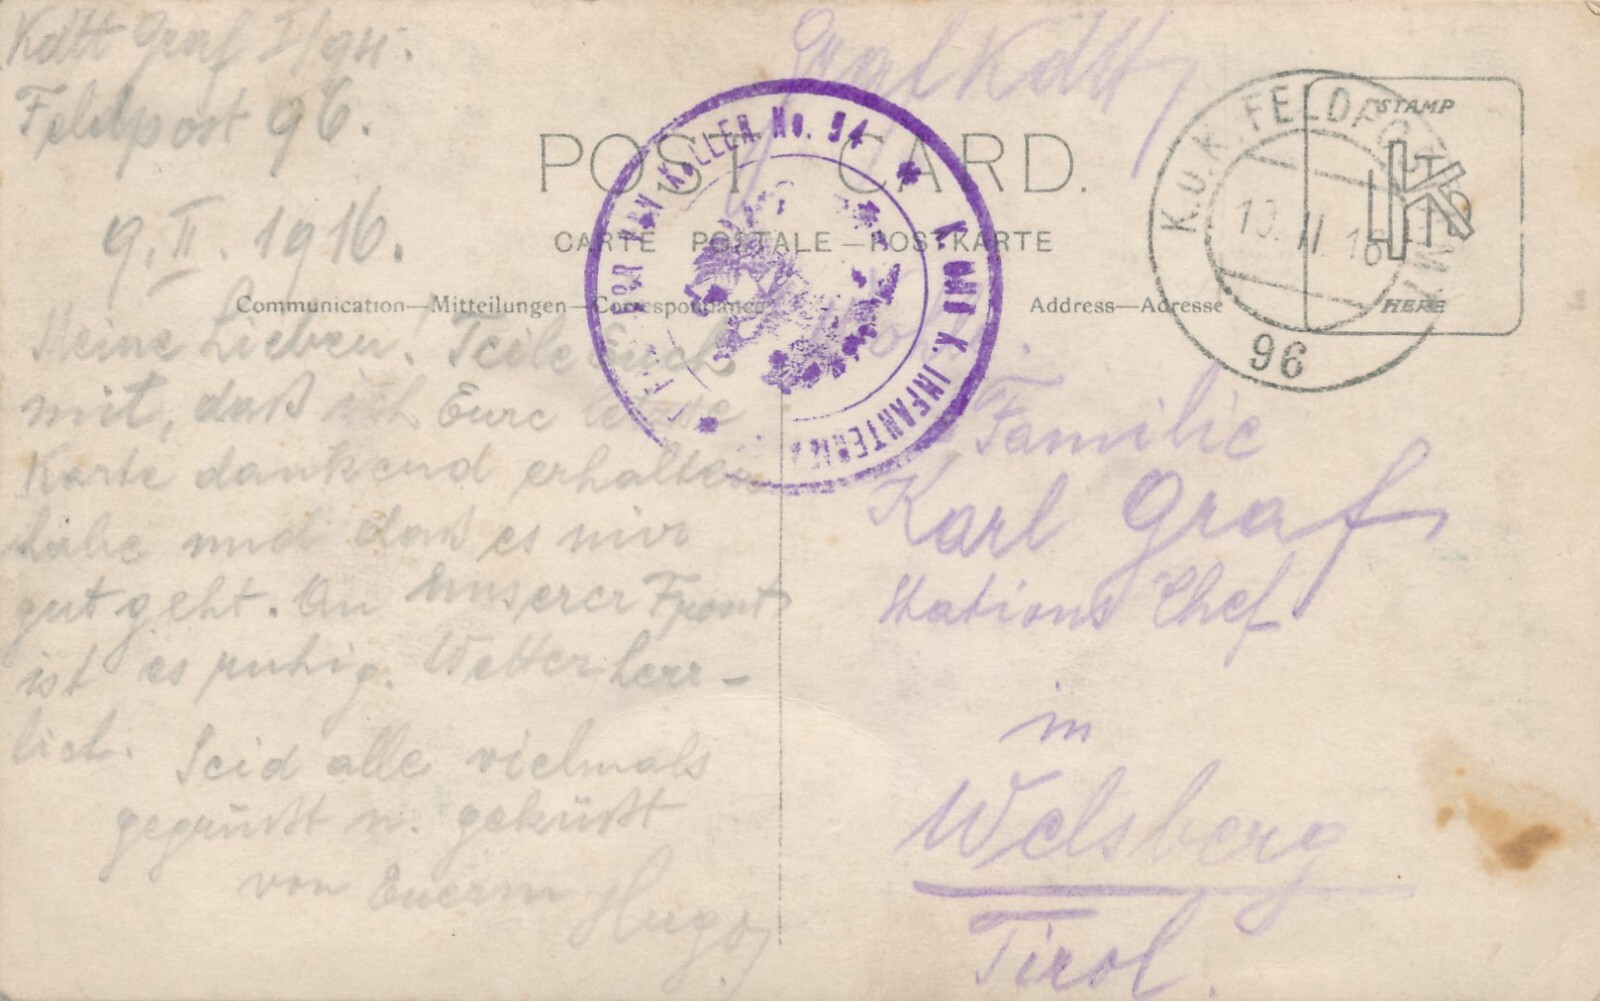 Kdtt Graf I/94.
Feldpost 96.
9. II. 1916.
Meine Lieben! Teile Euch
mit, daß ich Eure letzte
Karte dankend erhalten
habe und daß es mir
gut geht. An unserer Front
ist es ruhig. Wetter herr-
lich. Seid alle vielmals
gegrüßt u. geküßt
von Euerm Hugo
Graf Kdtt
POST CARD.
CARTE POSTALE — POSTKARTE
Communication—Mitteilungen—Correspondance
Address—Adresse
No. 94
K. INFANTERIE
K.U.K. FELDPOSTAMT
10. II. 16
96
STAMP
HERE
Familie
Karl Graf
Stations Chef
in
Welsberg
Tirol.